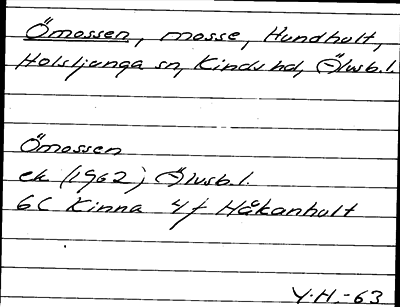 Ömossen, mosse, Hundhult,
Holsljunga sn, Kinds hd, Älvsb.l.
Ömossen
ek (1962), Älvsb.l.
6C Kinna 4f Håkanhult
Y.H.-63